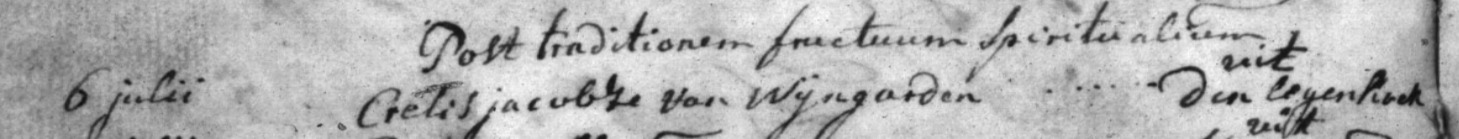 Post traditionem fructuum spiritualium
uit
6 julii Cretis jacobse van Wijngarden ...... den leyenhoek
uit